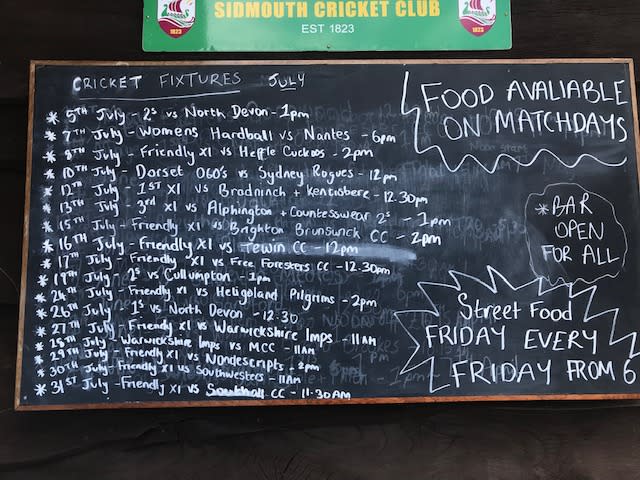 SIDMOUTH CRICKET CLUB
EST 1823
1823
1823
CRICKET FIXTURES JULY
* 5TH July - 2s vs North Devon - 1pm
* 7TH July - Womens Hardball vs Nantes - 6pm
* 8TH July - Friendly XI vs Heffle Cuckoos - 2pm
* 10TH July - Dorset O60's vs Sydney Rogues - 12pm
* 12TH July - 1ST XI vs Bradninch + Kentisbere - 12.30pm
* 13TH July - 3rd XI vs Alphington + Countesswear 2s - 1pm
* 15TH July - Friendly XI vs Brighton Brunswick CC - 2pm
* 16TH July - Friendly XI vs Tewin CC - 12pm
* 17TH July - Friendly XI vs Free Foresters CC - 12.30pm
* 19TH July - 2s vs Cullumpton - 1pm
* 24TH July - Friendly XI vs Heligoland Pilgrims - 2pm
* 26TH July - 1s vs North Devon - 12.30
* 27TH July - Friendly XI vs Warwickshire Imps - 11AM
* 28TH July - Warwickshire Imps vs MCC - 11AM
* 29TH July - Friendly XI vs Nondescripts - 2pm
* 30TH July - Friendly XI vs Southwesters - 11AM
* 31ST July - Friendly XI vs Southall CC - 11.30AM
FOOD AVALIABLE
ON MATCHDAYS
* BAR
OPEN
FOR ALL
Street Food
FRIDAY EVERY
FRIDAY FROM 6